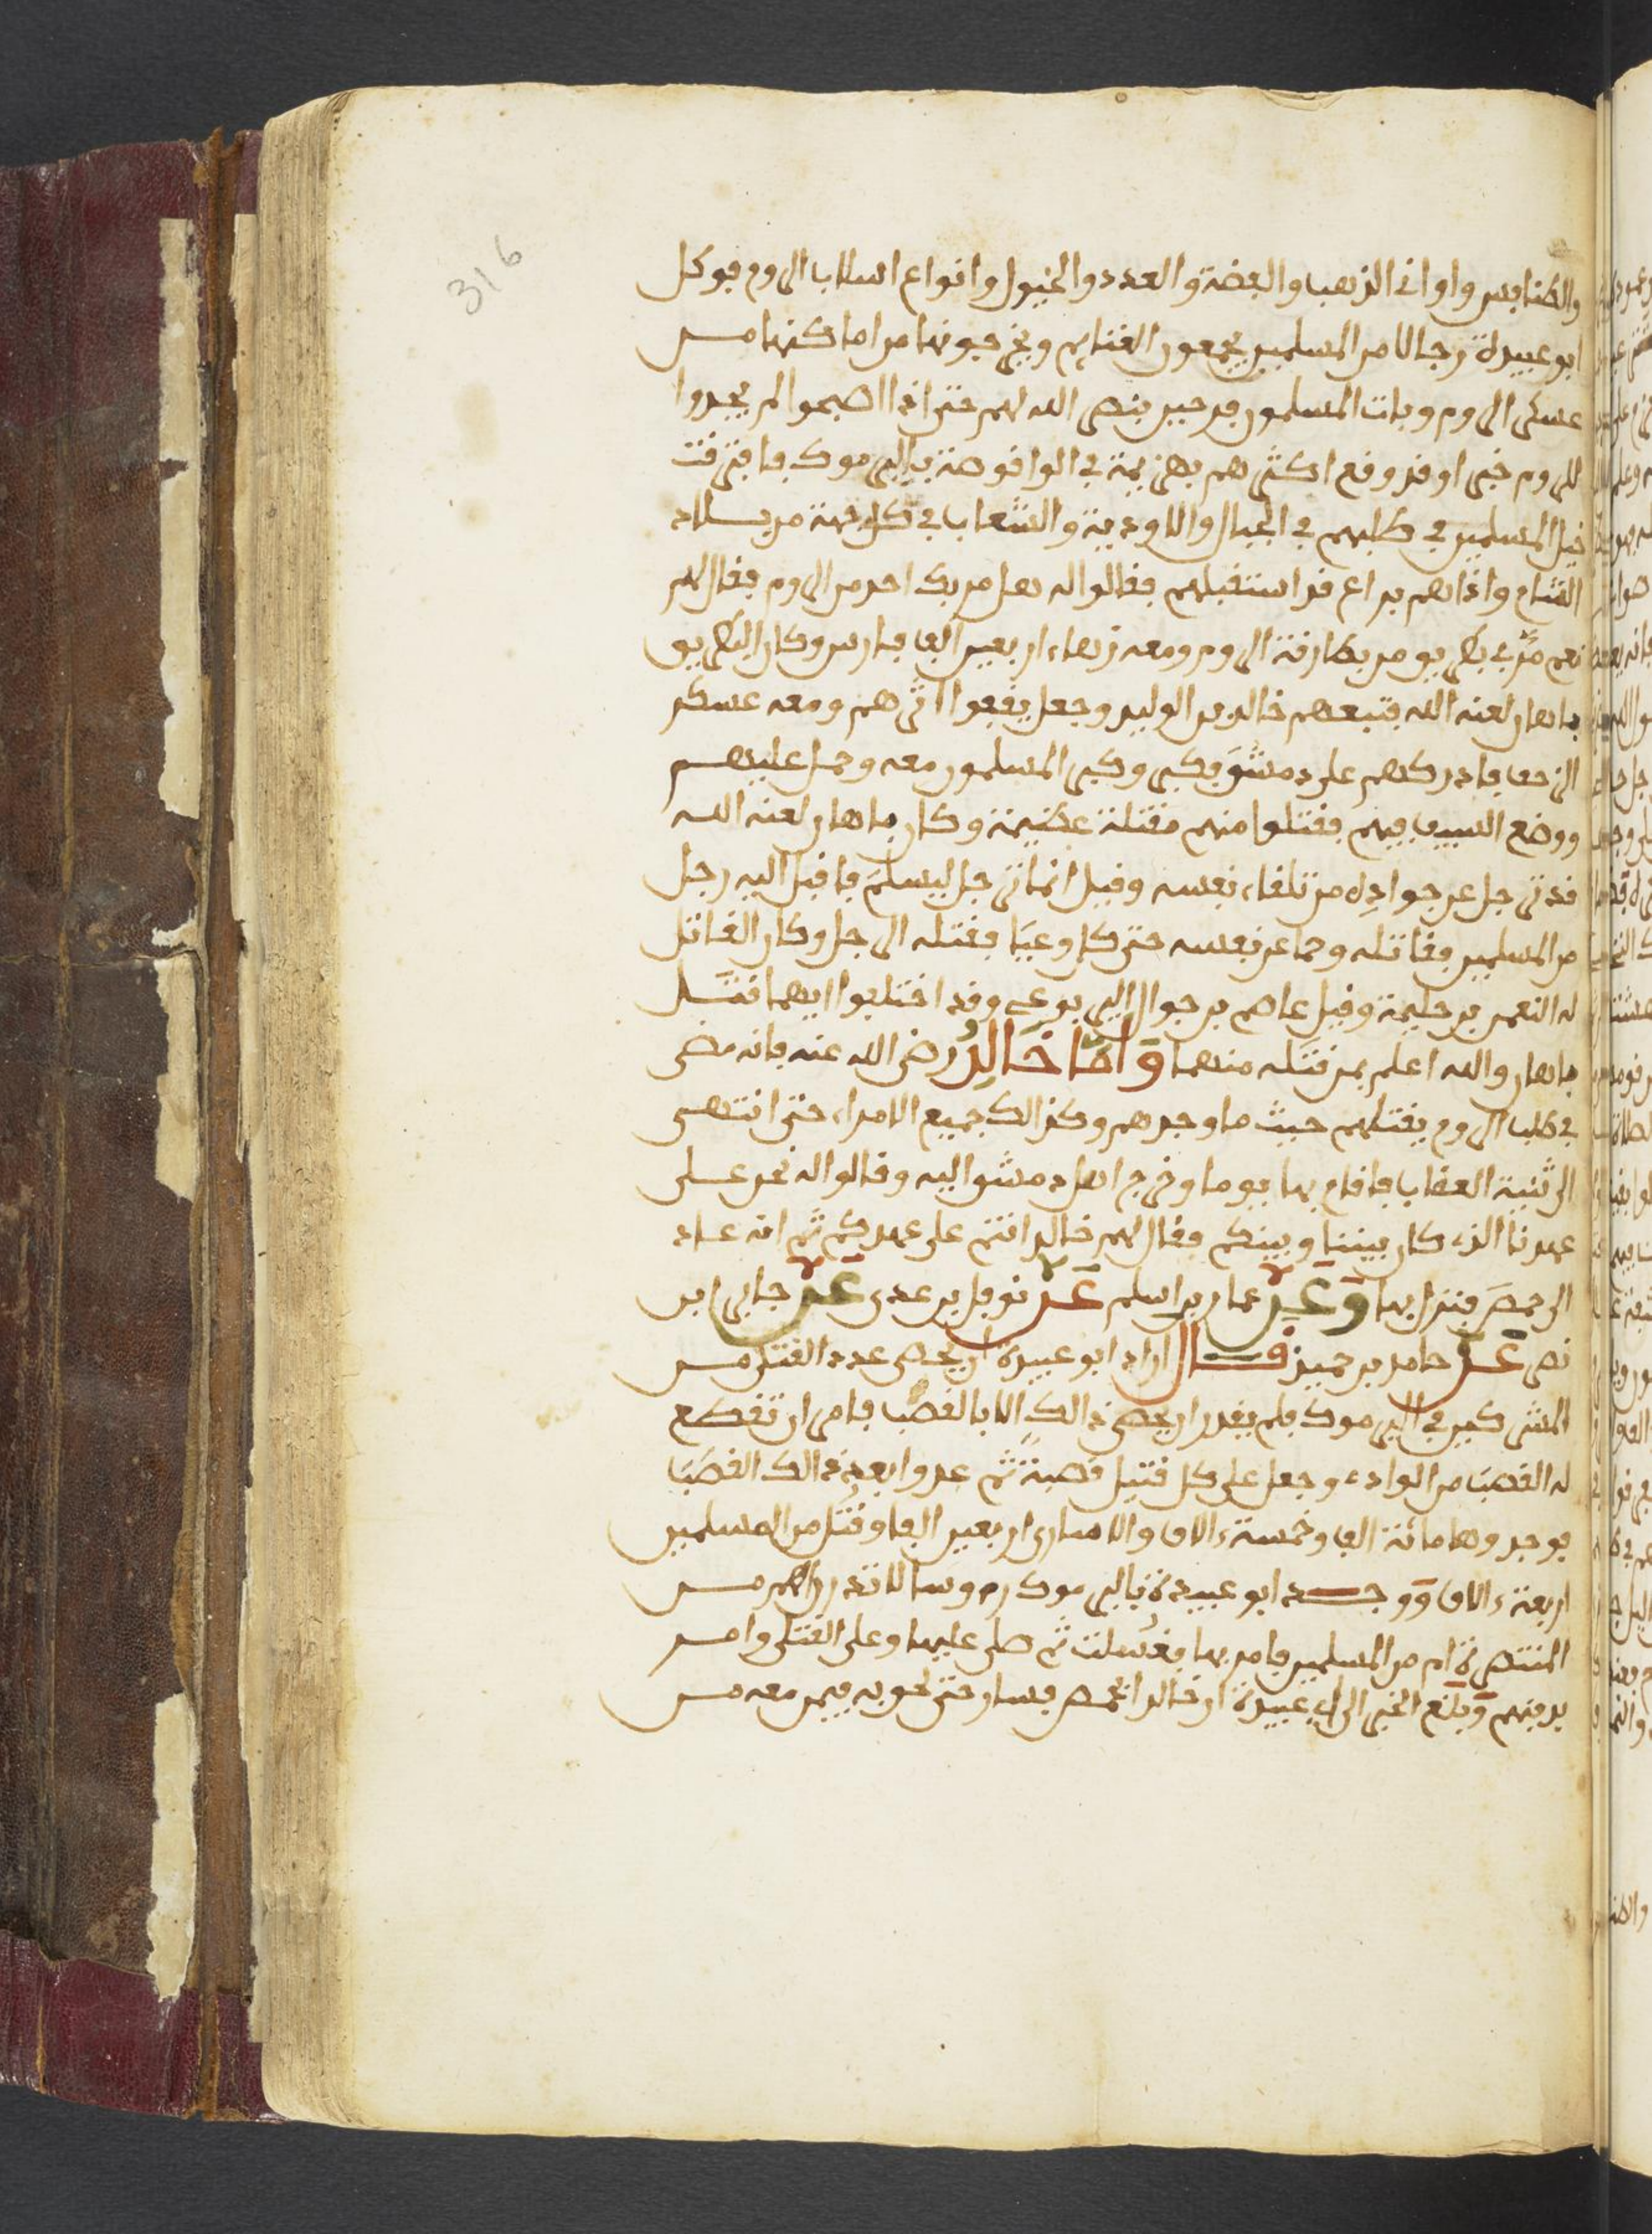 316
والطنافيس واواني الذهب والفضة والعدد والخيول وانواع اسلاب الروم فوكل
ابو عبيدة رجالا من المسلمين يجمعون الغنايم ويخرجونها من اماكنها من
عسكر الروم وبات المسلمون فرحين بنصر الله لهم حتى اذا اصبحوا لم يجدوا
للروم خبرا وقد وقع اكثرهم بهزيمة في الواقوصة باليرموك فافترقت
خيل المسلمين في طلبهم في الجبال والاودية والشعاب في كل جهة من بلاد
الشام واذاهم براع قد استقبلهم فقالوا له هل مر بك احد من الروم فقال لهم
نعم مر بي بطريق من بطارقة الروم ومعه زهاء اربعين الف فارس وكان البطريق
ماهان لعنه الله فتبعهم خالد بن الوليد وجعل يقفوا اثرهم ومعه عسكر
الزحف فادركهم على دمشق فكبر وكبر المسلمون معه وحمل عليهم
ووضع السيف فيهم فقتلوا منهم مقتلة عظيمة وكان ماهان لعنه الله
قد ترجل عن جواده من تلقاء نفسه وقيل انما ترجل ليسلم فاقبل اليه رجل
من المسلمين فقاتله وحما عن نفسه حتى كل وعيا فقتله الرجل وكان القاتل
له النعمن بن حليمة وقيل عاصم بن جوال اليربوعي وقد اختلفوا ايهما قتل
ماهان والله اعلم بمن قتله منهما واما خالد رضي الله عنه فانه مضى
في طلب الروم يقتلهم حيث ما وجدهم وكذالك جميع الامراء حتى انتهى
الى ثنية العقاب فاقام بها يوما وخرج اهل دمشق اليه وقالوا له نحن على
عهدنا الذي كان بيننا وبينكم فقال لهم خالد انتم على عهدكم ثم انه عاد
الى حمص فنزل بها وعن عمار بن اسلم عن نوفل بن عدي عن جابر ابن
نصر عن حامد بن حميد قال اراد ابو عبيدة ان يحصى عدد القتلى من
المشركين في اليرموك فلم يقدر ان يحصى ذالك الا بالقصب فامر ان تقطع
له القصب من الوادي وجعل على كل قتيل قصبة ثم عدوا بعد ذالك القصب
فوجدوها مائة الف وخمسة ءالاف والاسارى اربعين الفا وقتل من المسلمين
اربعة ءالاف ووجد ابو عبيدة باليرموك رءوسا لا تدرى اهم من
المنتصرة ام من المسلمين فامر بها فغسلت ثم صلى عليها وعلى القتلى وامر
بدفنهم وبلغ الخبر الى ابي عبيدة ان خالدا بحمص فسار حتى لحق به فيمن معه من